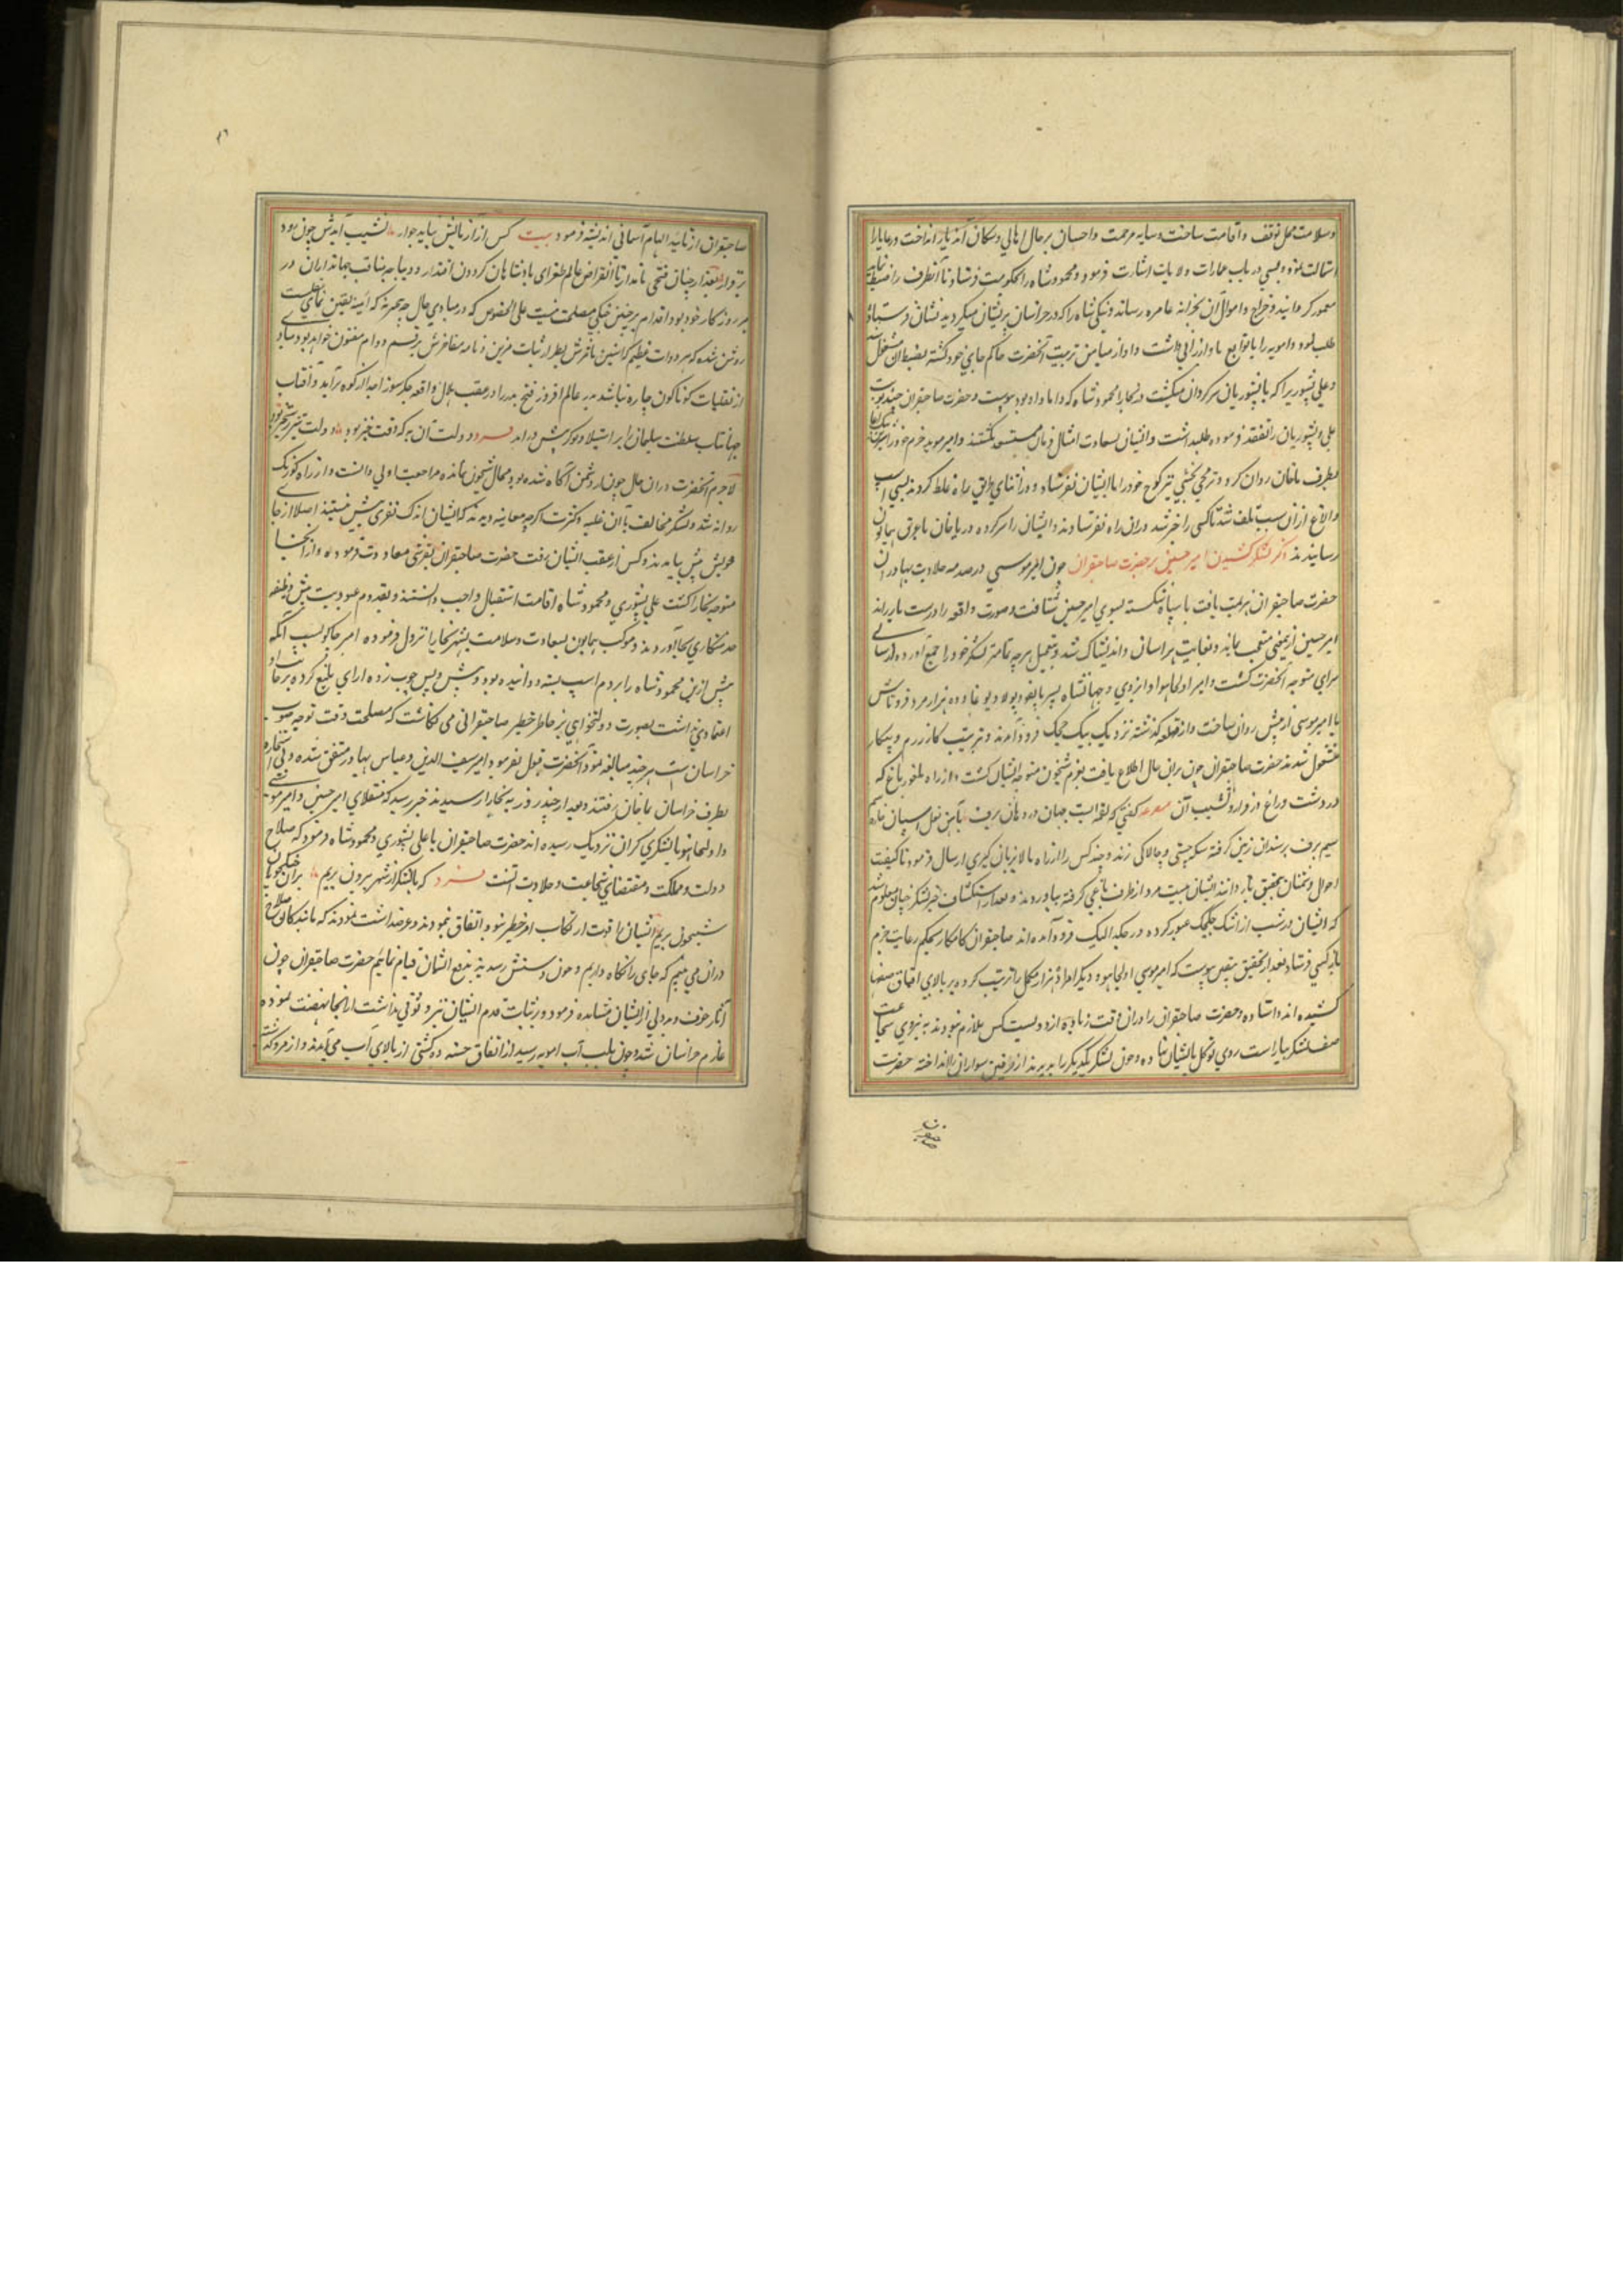 وسلامت محل توقف و اقامت ساخت و سایه مرحمت و احسان بر حال اهالی و سکان آن دیار انداخت و رعایا را
استمالت نموده و بسی در باب عمارات ولایات اشارت فرمود و محمود شاه را بحکومت فرستاد تا آنطرف را ضبط
معمور گرداند و خراج و اموال آن بخزانه عامره رساند و نیکی شاه را که در خراسان پریشان میگردید نشان فرستاده
طلب نمود و امویه را با توابع باو ارزانی داشت و او از میامن تربیت آنحضرت حاکم جای خود گشته بضبط آن مشغول شد
و علی یسوری را که با یسوریان سرگردان میگشت در بخارا محمود شاه که داماد او بود پیوست و حضرت صاحبقران
علی و یسوریان را تفقد فرموده طلب داشت و ایشان بسعادت امتثال فرمان مستسعد گشتند و امیر موید حرم خود را
بطرف ماخان روان کرد و ترمجی بخشی نیز کوچ خود را با ایشان نفرستاد و در اثنای طریق راه غلط کردند بسی اسب
و الاغ از آن سبب تلف شد تا کسی را خبر شد در آن راه نفرستادند و ایشان را سر کرده در ماخان باورق همایون
رسانیدند ذکر لشکر کشیدن امیر حسین بر حضرت صاحبقران چون امیر موسی در صدمه صلابت بهادران
حضرت صاحبقران هزیمت یافت با سپاه شکسته بسوی امیر حسین شتافت و صورت واقعه را درست باز راند
امیر حسین از یمعنی متعجب بماند و بغایت هراسان و اندیشناک شد و بتعجیل هرچه تمامتر لشکر خود را جمع آورده از سالی
سرای متوجه آنحضرت گشت و امیر اولجایتو و جهانشاه پسر تایغو و پولاد بوغا و ده هزار مرد
با امیر موسی از پیش روان ساخت و از قلعه گذشته نزدیک بیک چکک فرود آمدند و بترتیب کار رزم و پیکار
مشغول شدند حضرت صاحبقران چون بر آن حال اطلاع یافت بعزم شبیخون متوجه ایشان گشت و از راه بلغور باغ که
در دشت و راغ و فراز و نشیب آن مصرعه گفتی که لقمه ایست جهان در دهان برف بآهن نعل اسبان نازه
سیم برف بر سندان زمین کوفته سکه چستی و چالاکی زند و چند کس را از راه بالا بزبان گیری ارسال فرمود تا کیفیت
احوال دشمنان بتحقیق باز دانند ایشان بیست مرد از طرف یاغی گرفته بیاوردند و بعد از استکشاف خبر لشکر چنان معلوم شد
که ایشان در شب از اشک چکچک عبور کرده در جکدالیک فرود آمده اند صاحبقران کامکار بحکم رعایت حزم
باز کسی فرستاد بعد از تحقیق بیقین پیوست که امیر موسی و اولجایتو و دیگر امرا ده هزار مکمل را ترتیب کرده بر بالای اقماق صفها
کشیده اند و استاده و حضرت صاحبقران را در آن وقت زیاده از دویست کس ملازم نبودند به نیروی شجاعت
صف لشکر بیاراست روی توکل بایشان نهاده و چون لشکر یکدیگر را بدیدند از طرفین سواران را انداخته حضرت
صاحبقران از تائید الهام آسمانی اندیشه فرمود بیت کس از آزمایش نیابد جواز نشیب آیدش چون بود
بر فراز بعد از چنان فتحی نامدار تا انقراض عالم طغرای پادشاهان گردون اقتدار و دیباجه مناقب جهانداران در
هر روزگار خود بود اقدام بر چنین جنگی مصلحت نیست علی الخصوص که در مبادی حال چه تجربه که آئینه یقین نمای تجلیت
روشن شده که هر دولت عظیم که آستین مفاخرش بطراز ثبات مزین و نامه مفاخرش برقم دوام معنون خواهد بود مبادی
از تقلبات گوناگون چاره نباشد بدر عالم افروز فتح بدر را در عقب هلال واقعه جگرسوز احد از کوه برآید و آفتاب
جهانتاب سلطنت سلیمان را بر استیلا دیو گریش در آمد فرد دولت آن به که افت خیز بود دولت تیز رستخیز بود
لاجرم آنحضرت در آن حال چون باد دشمن آگاه شده بود و محال شبیخون نمانده مراجعت اولی دانست و از راه کوزیک
روانه شد و لشکر مخالف با آن غلبه و کثرت اگرچه معاینه دیدند که ایشان اندک نفری بیش نیستند اصلا از جای
خویش پیش نیامدند و کس از عقب ایشان نرفت حضرت صاحبقران بقرشی معاودت فرموده و از آنجا
متوجه بخارا گشت علی یسوری و محمود شاه اقامت استقبال واجب دانستند و بقدوم عبودیت پیش وظیفه
خدمتکاری بجا آوردند و موکب همایون بسعادت و سلامت بشهر بخارا نزول فرموده امیر جاکو بسبب آنکه
پیش ازین محمود شاه را بر دم اسب بسته دوانیده بود و پیش و پس چوب زده ازاری بلیغ کرده بر جانب او
اعتمادی نداشت بصورت دولتخواهی بر خاطر خطیر صاحبقرانی می گماشت که مصلحت وقت توجه صوب
خراسان است هرچند مبالغه نمود آنحضرت قبول نفرمود و امیر سیف الدین و عباس بهادر متفق شده و بی استجازه
بطرف خراسان ماخان رفتند و بعد از چند روز به بخارا رسیدند خبر رسید که منقلای امیر حسین و امیر موسی
و اولجایتو با لشکری گران نزدیک رسیده اند حضرت صاحبقران با علی یسوری و محمود شاه فرمود که صلاح
دولت و مملکت و مقتضای شجاعت و جلادت آنست فرد که با لشکر از شهر بیرون بریم بر آن جنگجویان
شبیخون بریم ایشان را قوت ارتکاب امر خطیر نبود اتفاق ننمودند و عرضداشت نمودند که ما بندگان صلاح
در آن می بینیم که جای را نگاه داریم و چون دشمنش رسد نیز بدفع ایشان قیام نمائیم حضرت صاحبقران چون
آثار خوف و بددلی از ایشان مشاهده فرمود و بر ثبات قدم ایشان نیز وثوقی نداشت از آنجا نهضت نموده
عازم خراسان شد و چون بلب آب امویه رسید از اتفاق حسنه ده کشتی از بالای آب می آمدند و از مرو گذشته